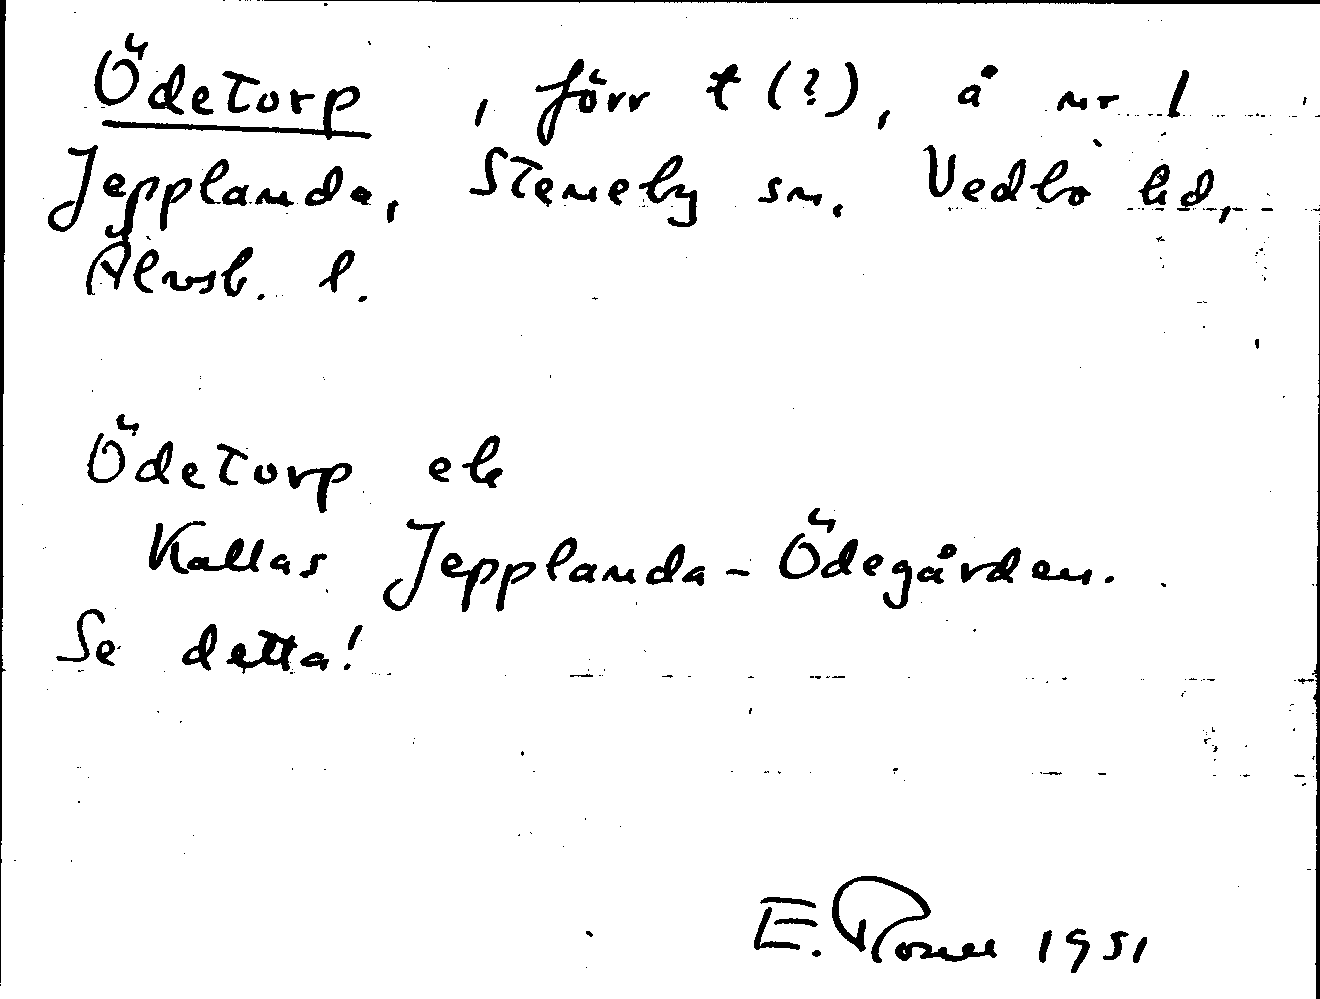 Ödetorp, förr t (?), å nr 1
Jepplanda, Steneby sn. Vedbo hd,
Älvsb. l.
Ödetorp ek
Kallas Jepplanda-Ödegården.
Se detta!
E. 1951